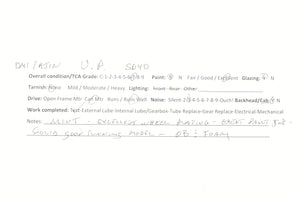 DMI/AJIN U.P. SD40
Overall condition/TCA Grade: C-1-2-3-4-5-6-7-8-9 Paint: N Fair / Good / Excellent Glazing: N
Tarnish: None Mild / Moderate / Heavy Lighting: Front - Rear - Other:
Drive: Open Frame Mtr Can Mtr Runs / Runs Well Noise: Silent-2-3-4-5-6-7-8-9 Ouch! Backhead/Cab: N
Work completed: Test- External Lube-Internal Lube/Gearbox-Tube Replace-Gear Replace-Electrical-Mechanical
Notes: MINT - EXCELLENT WHEEL PLATING - PAINT
SOLID GOOD RUNNING MODEL - OB & FOAM